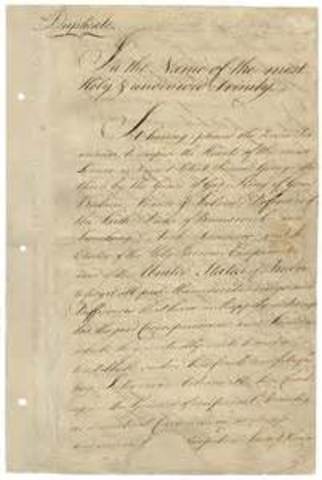 Duplicate.
In the Name of the most
Holy & undivided Trinity.
It having pleased the Divine Pro-
vidence to dispose the Hearts of the most
Serene and most Potent Prince George the
third, by the Grace of God, King of Great
Britain, France & Ireland, Defender of
the Faith, Duke of Brunswick and
Lunebourg, Arch Treasurer and
Elector of the Holy Roman Empire
and of the United States of America
to forget all past Misunderstandings and
Differences that have unhappily interrupted
the good Correspondence and Friendship
which they mutually wish to
between the two Countries
upon the Ground of reciprocal Advantages
and mutual Convenience as may
perpetual Peace